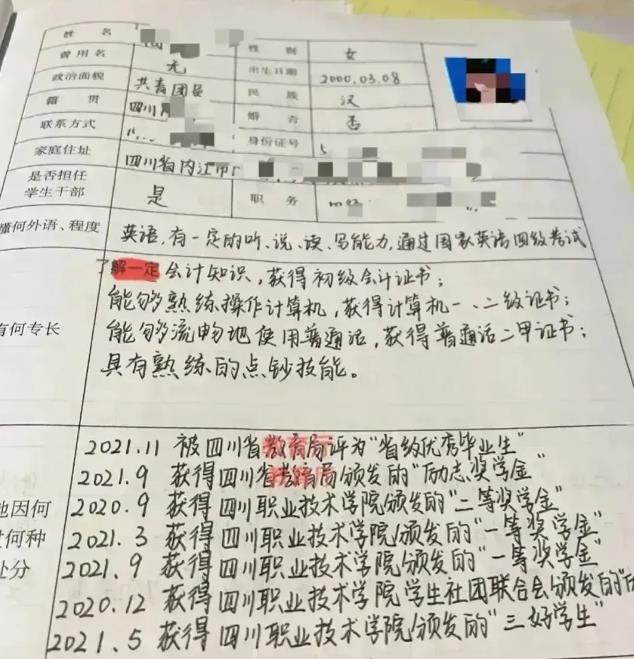 姓 名 性 别 女
曾用名 无 出生日期 2000.03.08
政治面貌 共青团员 民 族 汉
籍 贯 四川 婚 否 否
联系方式 身份证号 5
家庭住址 四川省内江市
是否担任
学生干部 是 职 务
懂何外语、程度 英语,有一定的听、说、读、写能力,通过国家英语四级考试
了解一定会计知识,获得初级会计证书;
能够熟练操作计算机,获得计算机一、二级证书;
有何专长 能够流畅地使用普通话,获得普通话二甲证书;
具有熟练的点钞技能。
2021.11 被四川省教育厅评为"省级优秀毕业生"
2021.9 获得四川省教育厅颁发的"励志奖学金"
因何 2020.9 获得四川职业技术学院颁发的"二等奖学金"
何种 2021.3 获得四川职业技术学院颁发的"一等奖学金"
处分 2021.9 获得四川职业技术学院颁发的"一等奖学金"
2020.12 获得四川职业技术学院学生社团联合会颁发的"
2021.5 获得四川职业技术学院颁发的"三好学生"